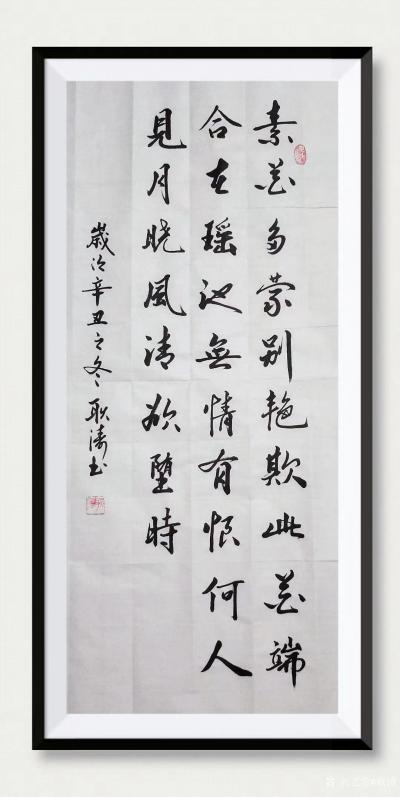 素花多蒙别艳欺此花端
合在瑶池無情有恨何人
見月晓風清欲堕時
歲次辛丑之冬耿濤书